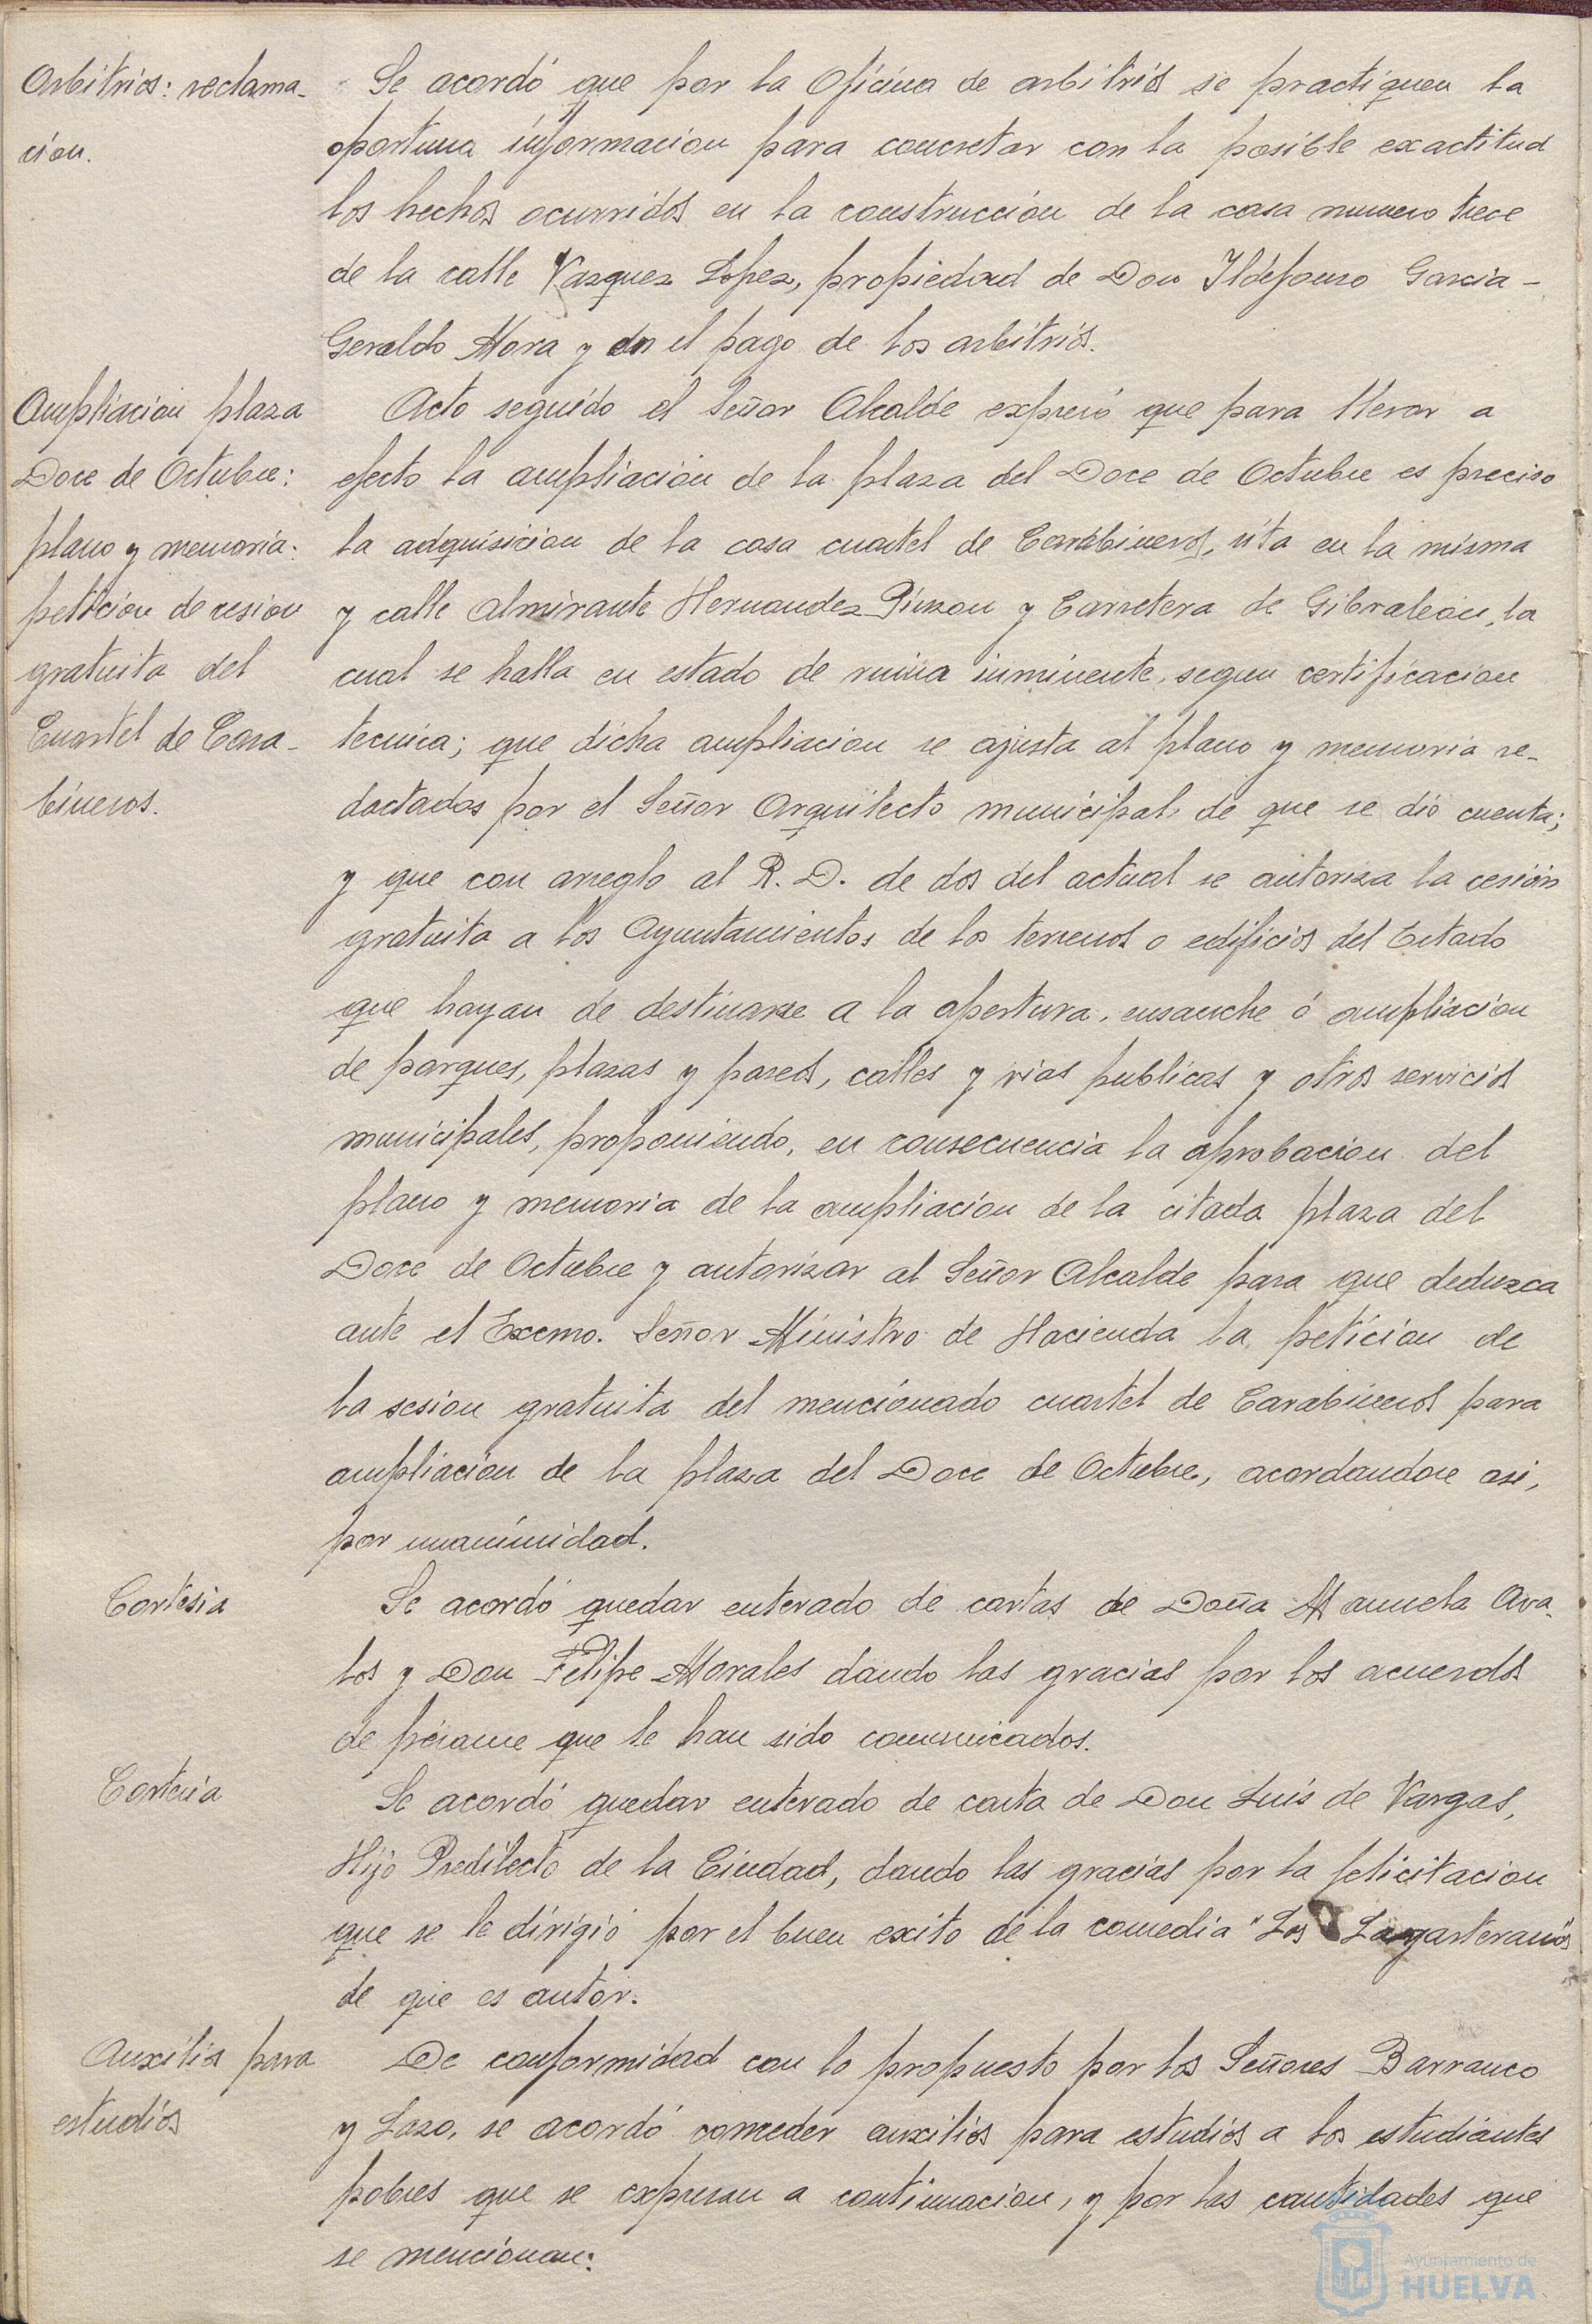 Arbitrios: reclama-
cion.
Se acordó que por la Oficina de arbitrios se practiquen la
oportuna información para concretar con la posible exactitud
los hechos ocurridos en la construcción de la casa numero trece
de la calle Vazquez Lopez, propiedad de Don Ildefonso Garcia-
Geraldo Mora y en el pago de los arbitrios.
Ampliacion plaza
Doce de Octubre:
plano y memoria:
petición de cesion
gratuita del
Cuartel de Cara-
bineros.
Acto seguido el Señor Alcalde expresó que para llevar a
efecto la ampliación de la plaza del Doce de Octubre es preciso
la adquisicion de la casa cuartel de Carabineros, sita en la misma
y calle Almirante Hernandez Pinzon y Carretera de Gibraleón, la
cual se halla en estado de ruina inminente, segun certificacion
tecnica; que dicha ampliacion se ajusta al plano y memoria re-
dactados por el Señor Arquitecto municipal, de que se dió cuenta;
y que con arreglo al R. D. de dos del actual se autoriza la cesión
gratuita a los Ayuntamientos de los terrenos o edificios del Estado
que hayan de destinarse a la apertura, ensanche ó ampliación
de parques, plazas y paseos, calles y vias publicas y otros servicios
municipales, proponiendo, en consecuencia la aprobacion del
plano y memoria de la ampliación de la citada plaza del
Doce de Octubre y autorizar al Señor Alcalde para que deduzca
ante el Excmo. Señor Ministro de Hacienda la petición de
la sesion gratuita del mencionado cuartel de Carabineros para
ampliación de la plaza del Doce de Octubre, acordandose asi,
por unanimidad.
Cortesia
Se acordó quedar enterado de cartas de Doña Manuela Ava-
los y Don Felipe Morales dando las gracias por los acuerdos
de pésame que le han sido comunicados.
Cortesia
Se acordó quedar enterado de carta de Don Luis de Vargas,
Hijo Predilecto de la Ciudad, dando las gracias por la felicitacion
que se le dirigió por el buen exito de la comedia "Los Lagarteranos"
de que es autor.
Auxilio para
estudios
De conformidad con lo propuesto por los Señores Barranco
y Lazo, se acordó conceder auxilios para estudios a los estudiantes
pobres que se expresan a continuacion, y por las cantidades que
se mencionan:
Ayuntamiento de
HUELVA